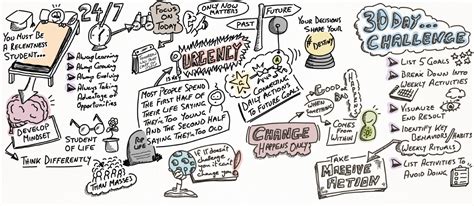 You Must Be
A Relentness
Student...
24/7
Always Learning
Always Growing
Always Evolving
Always Taking
Advantage of
Opportunities
Develop
Mindset
Student
of Life
Think Differently
Than Masses
Focus
on
Today
Only Now
Matters
Urgency
Most People Spend
The First Half of
Their Life Saying
They're Too Young
And The Second Half
Saying They're Too Old
RIP
Life
If It Doesn't
Challenge
You It Can't
Change You
Past
Future
Connecting
Daily Actions
to Future Goals!
Your Decisions
Shape Your
Destiny
Good
Bad
When
Something
Happens
Change
Happens Only
Comes
From Within
Take
Massive
Action
30 Day...
Challenge
List 5 Goals
Break Down Into
Weekly Activities
Visualize
End Result
Identify Key
Behaviors/Habits
Weekly Rituals
List Activities to
Avoid Doing